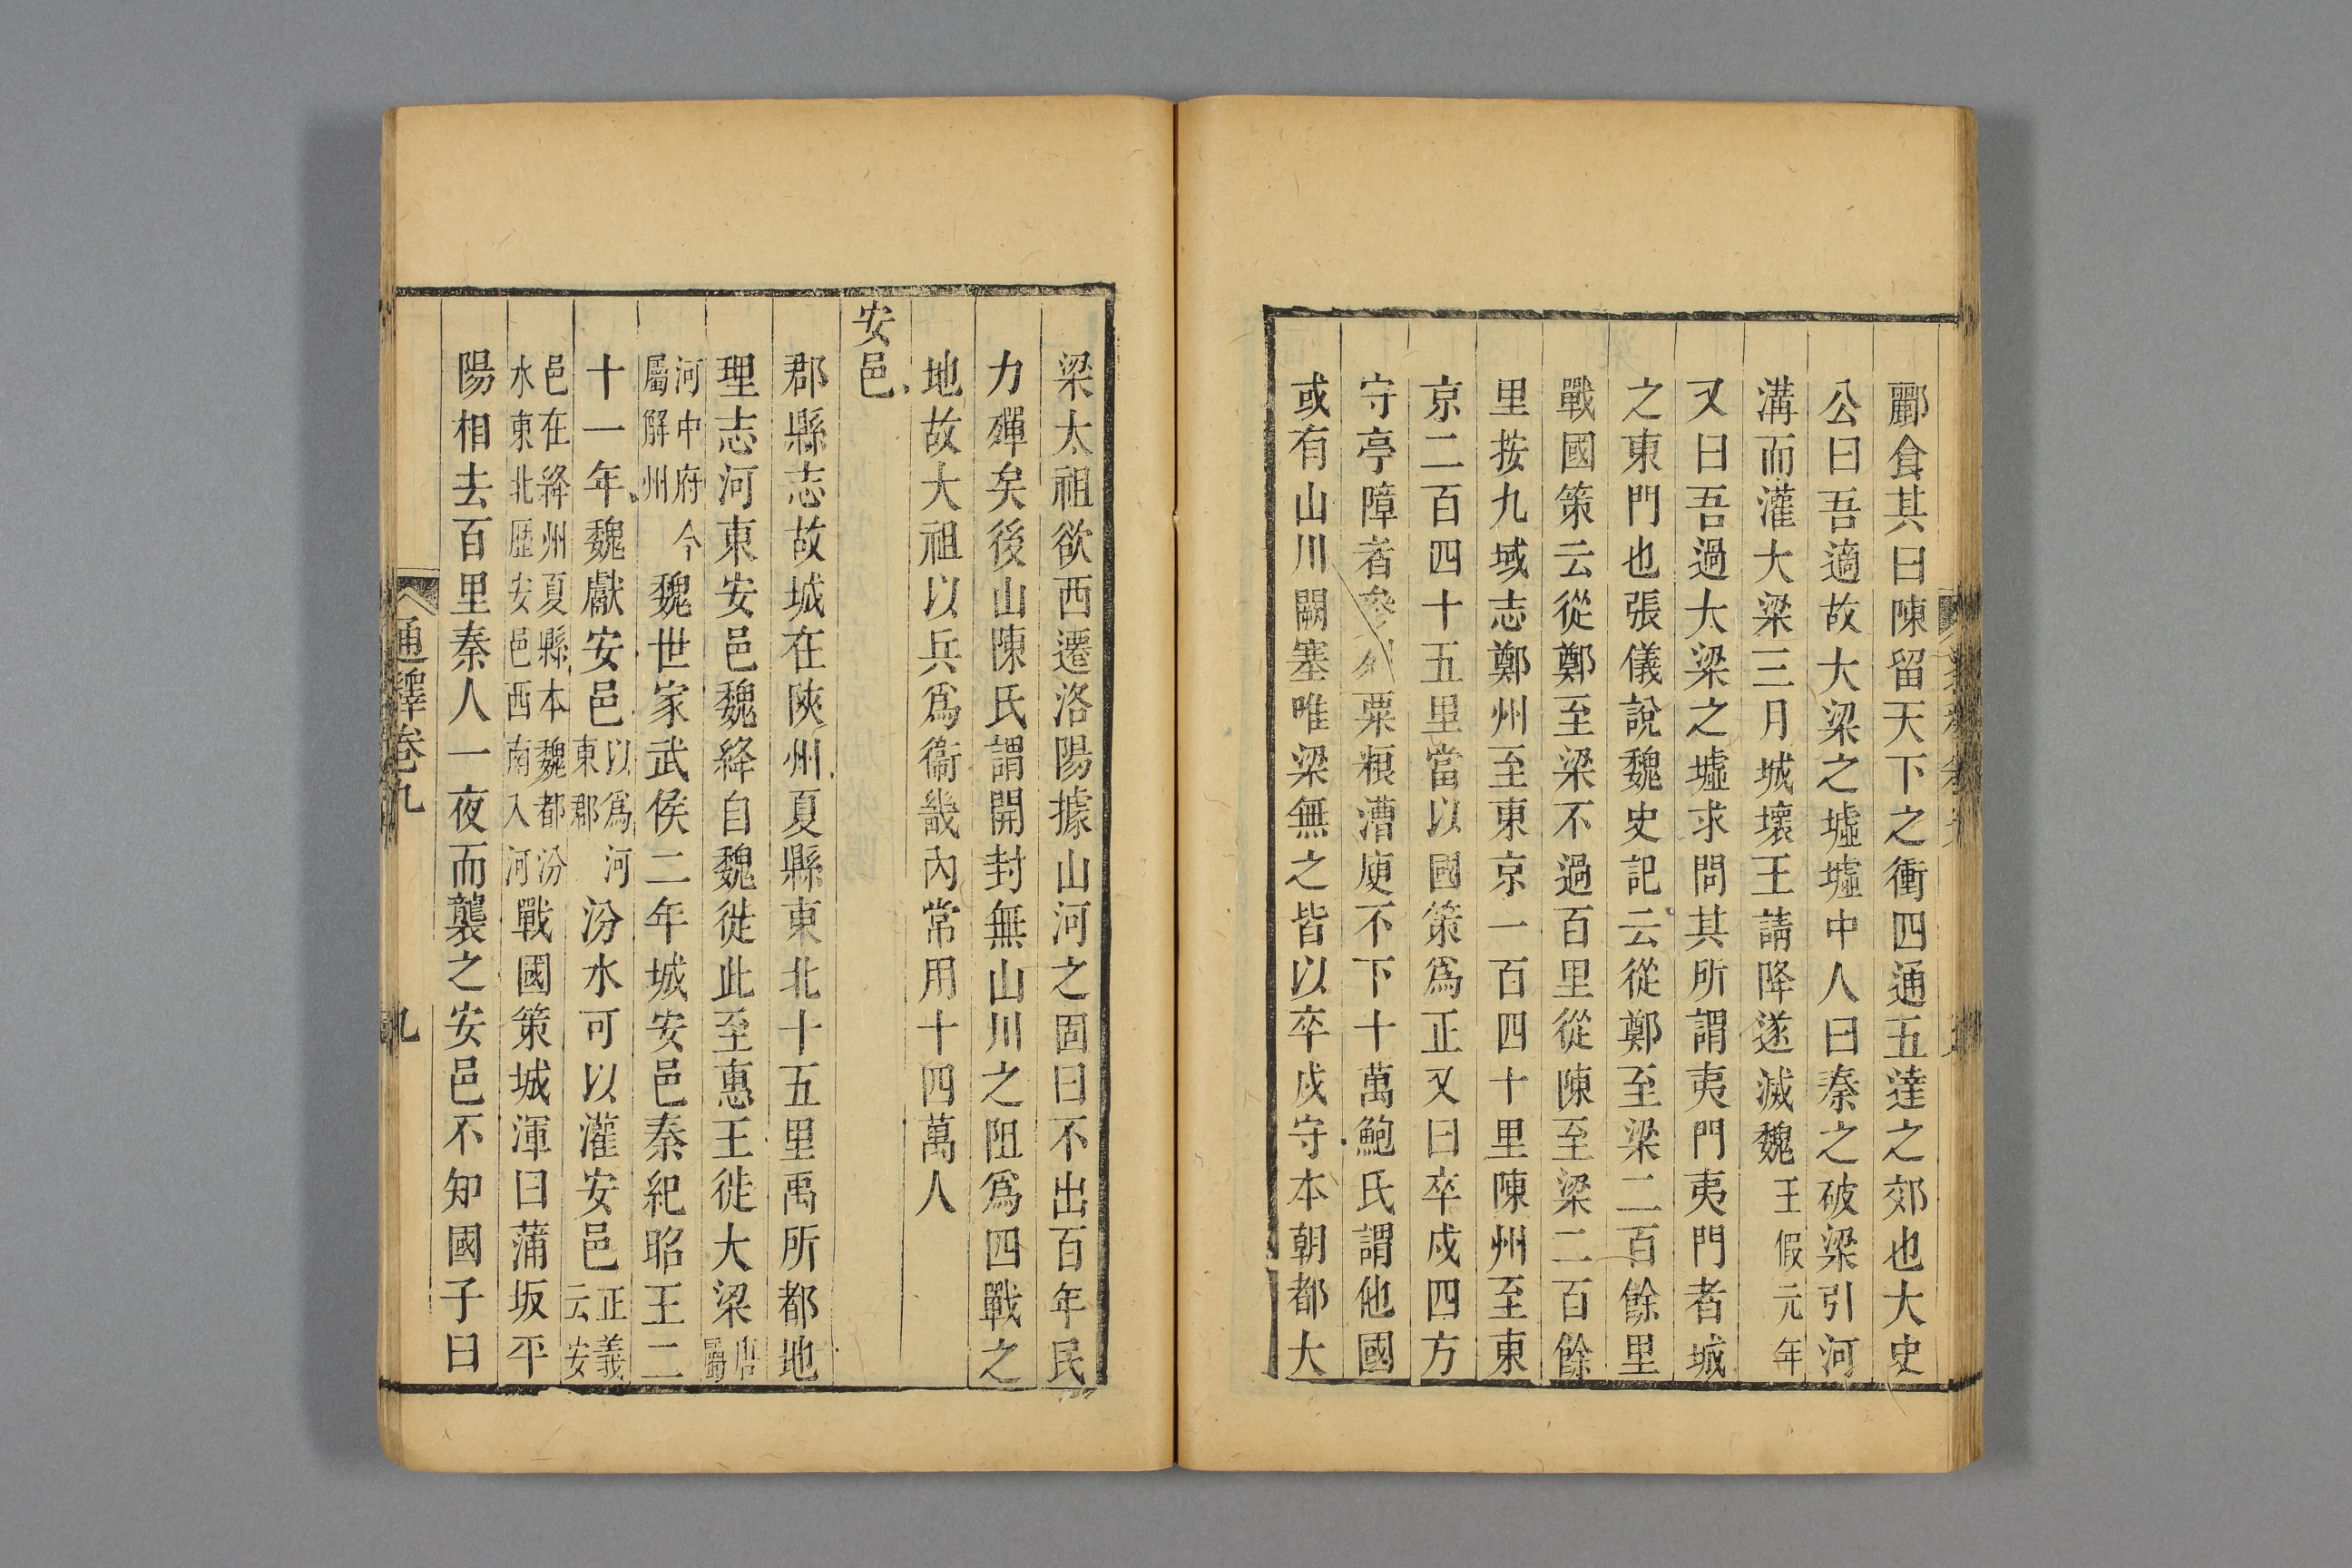 酈食其曰陳留天下之衝四通五達之郊也大史
公曰吾適故大梁之墟墟中人曰秦之破梁引河
溝而灌大梁三月城壞王請降遂滅魏王假元年
又曰吾過大梁之墟求問其所謂夷門夷門者城
之東門也張儀說魏史記云從鄭至梁二百餘里
戰國策云從鄭至梁不過百里從陳至梁二百餘
里按九域志鄭州至東京一百四十里陳州至東
京二百四十五里當以國策爲正又曰卒戍四方
守亭障者參列粟粮漕庾不下十萬鮑氏謂他國
或有山川關塞唯梁無之皆以卒戍守本朝都大
梁太祖欲西遷洛陽據山河之固曰不出百年民
力殫矣後山陳氏謂開封無山川之阻爲四戰之
地故大祖以兵爲衞畿內常用十四萬人
安邑
郡縣志故城在陝州夏縣東北十五里禹所都地
理志河東安邑魏絳自魏徙此至惠王徙大梁唐屬
河中府今屬解州魏世家武侯二年城安邑秦紀昭王二
十一年魏獻安邑以爲河東郡汾水可以灌安邑正義云安
邑在絳州夏縣本魏都汾水東北歷安邑西南入河戰國策城渾曰蒲坂平
陽相去百里秦人一夜而襲之安邑不知國子曰
通釋卷九
九